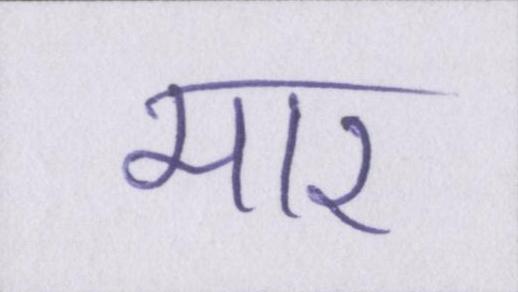 मार